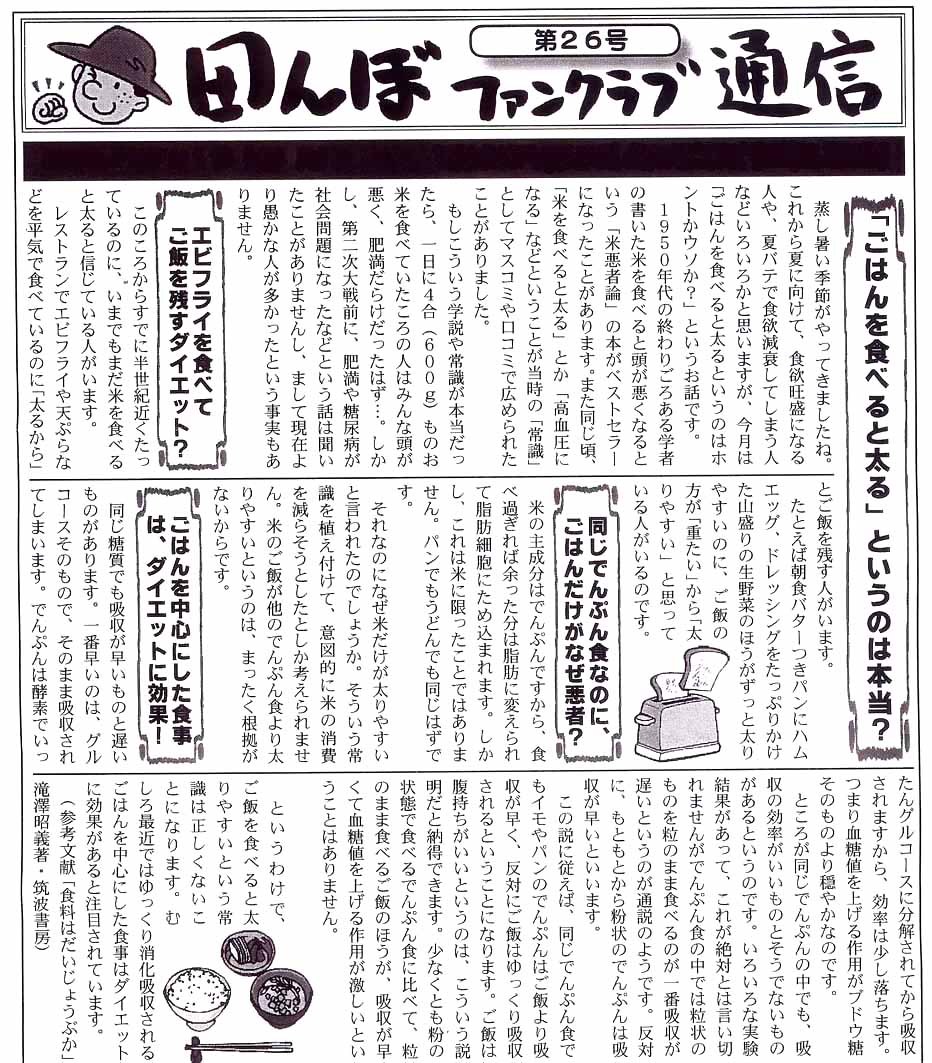 第26号
田んぼファンクラブ通信
「ごはんを食べると太る」というのは本当?
蒸し暑い季節がやってきましたね。
これから夏に向けて、食欲旺盛になる
人や、夏バテで食欲減衰してしまう人
などいろいろかと思いますが、今月は
「ごはんを食べると太るというのはホ
ントかウソか?」というお話です。
1950年代の終わりごろある学者
の書いた米を食べると頭が悪くなると
いう「米悪者論」の本がベストセラー
になったことがあります。また同じ頃、
「米を食べると太る」とか「高血圧に
なる」などということが当時の「常識」
としてマスコミや口コミで広められた
ことがありました。
もしこういう学説や常識が本当だっ
たら、一日に4合(600g)ものお
米を食べていたころの人はみんな頭が
悪く、肥満だらけだったはず…。しか
し、第二次大戦前に、肥満や糖尿病が
社会問題になったなどという話は聞い
たことがありませんし、まして現在よ
り愚かな人が多かったという事実もあ
りません。
エビフライを食べて
ご飯を残すダイエット?
このころからすでに半世紀近くたっ
ているのに、いまでもまだ米を食べる
と太ると信じている人がいます。
レストランでエビフライや天ぷらな
どを平気で食べているのに「太るから」
とご飯を残す人がいます。
たとえば朝食バターつきパンにハム
エッグ、ドレッシングをたっぷりかけ
た山盛りの生野菜のほうがずっと太り
やすいのに、ご飯の
方が「重たい」から「太
りやすい」と思って
いる人がいるのです。
同じでんぷん食なのに、
ごはんだけがなぜ悪者?
米の主成分はでんぷんですから、食
べ過ぎれば余った分は脂肪に変えられ
て脂肪細胞にため込まれます。しか
し、これは米に限ったことではありま
せん。パンでもうどんでも同じはずで
す。
それなのになぜ米だけが太りやすい
と言われたのでしょうか。そういう常
識を植え付けて、意図的に米の消費
を減らそうとしたとしか考えられませ
ん。米のご飯が他のでんぷん食より太
りやすいというのは、まったく根拠が
ないからです。
ごはんを中心にした食事
は、ダイエットに効果!
同じ糖質でも吸収が早いものと遅い
ものがあります。一番早いのは、グル
コースそのもので、そのまま吸収され
てしまいます。でんぷんは酵素でいっ
たんグルコースに分解されてから吸収
されますから、効率は少し落ちます。
つまり血糖値を上げる作用がブドウ糖
そのものより穏やかなのです。
ところが同じでんぷんの中でも、吸
収の効率がいいものとそうでないもの
があるというのです。いろいろな実験
結果があって、これが絶対とは言い切
れませんがでんぷん食の中では粒状の
ものを粒のまま食べるのが一番吸収が
遅いというのが通説のようです。反対
に、もともとから粉状のでんぷんは吸
収が早いといいます。
この説に従えば、同じでんぷん食で
もイモやパンのでんぷんはご飯より吸
収が早く、反対にご飯はゆっくり吸収
されるということになります。ご飯は
腹持ちがいいというのは、こういう説
明だと納得できます。少なくとも粉の
状態で食べるでんぷん食に比べて、粒
のまま食べるご飯のほうが、吸収が早
くて血糖値を上げる作用が激しいとい
うことはありません。
というわけで、
ご飯を食べると太
りやすいという常
識は正しくないこ
とになります。む
しろ最近ではゆっくり消化吸収される
ごはんを中心にした食事はダイエット
に効果があると注目されています。
(参考文献「食料はだいじょうぶか」
滝澤昭義著・筑波書房)